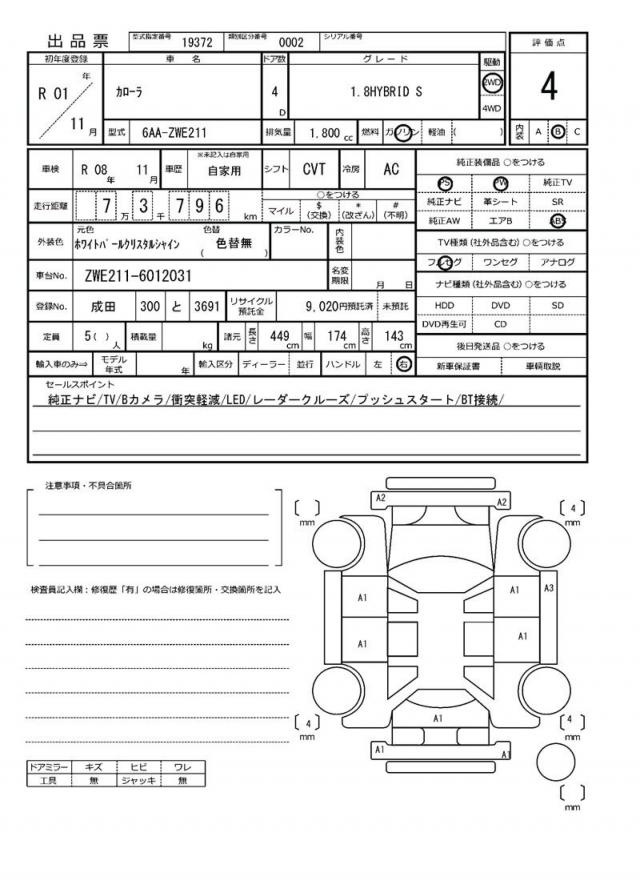 出品票 型式指定番号 19372 類別区分番号 0002 シリアル番号
評価点
4
内装 A B C
初年度登録 車名 ドア数 グレード 駆動
R 01 年 11 月
カローラ 4 D 1.8HYBRID S 2WD 4WD
型式 6AA-ZWE211 排気量 1,800 cc 燃料 ガソリン 軽油 ( )
車検 R 08 年 11 月 車歴 ※未記入は自家用 自家用 シフト CVT 冷房 AC
走行距離 7 万 3 千 7 9 6 km
○をつける
マイル $ (交換) * (改ざん) # (不明)
外装色 元色 ホワイトパールクリスタルシャイン 色替 ( 色替無 ) カラーNo. 内装色
車台No. ZWE211-6012031 名変期限 月 日
登録No. 成田 300 と 3691 リサイクル預託金 9,020円預託済 未預託
定員 5( ) 人 積載量 kg 諸元 長さ 449 cm 幅 174 cm 高さ 143 cm
輸入車のみ⇒ モデル年式 年 輸入区分 ディーラー 並行 ハンドル 左 右
純正装備品 ○をつける
PS PW 純正TV
純正ナビ 革シート SR
純正AW エアB ABS
TV種類(社外品含む)○をつける
フルセグ ワンセグ アナログ
ナビ種類(社外品含む)○をつける
HDD DVD SD
DVD再生可 CD
後日発送品 ○をつける
新車保証書 車輌取説
セールスポイント
純正ナビ/TV/Bカメラ/衝突軽減/LED/レーダークルーズ/プッシュスタート/BT接続/
注意事項・不具合箇所
検査員記入欄:修復歴「有」の場合は修復箇所・交換箇所を記入
ドアミラー キズ ヒビ ワレ
工具 無 ジャッキ 無
A2 A2
[ ] mm [ 4 ] mm
A1 A1 A3
A1 A1
A1
[ 4 ] mm [ 4 ] mm
A1 A1
[ ] mm